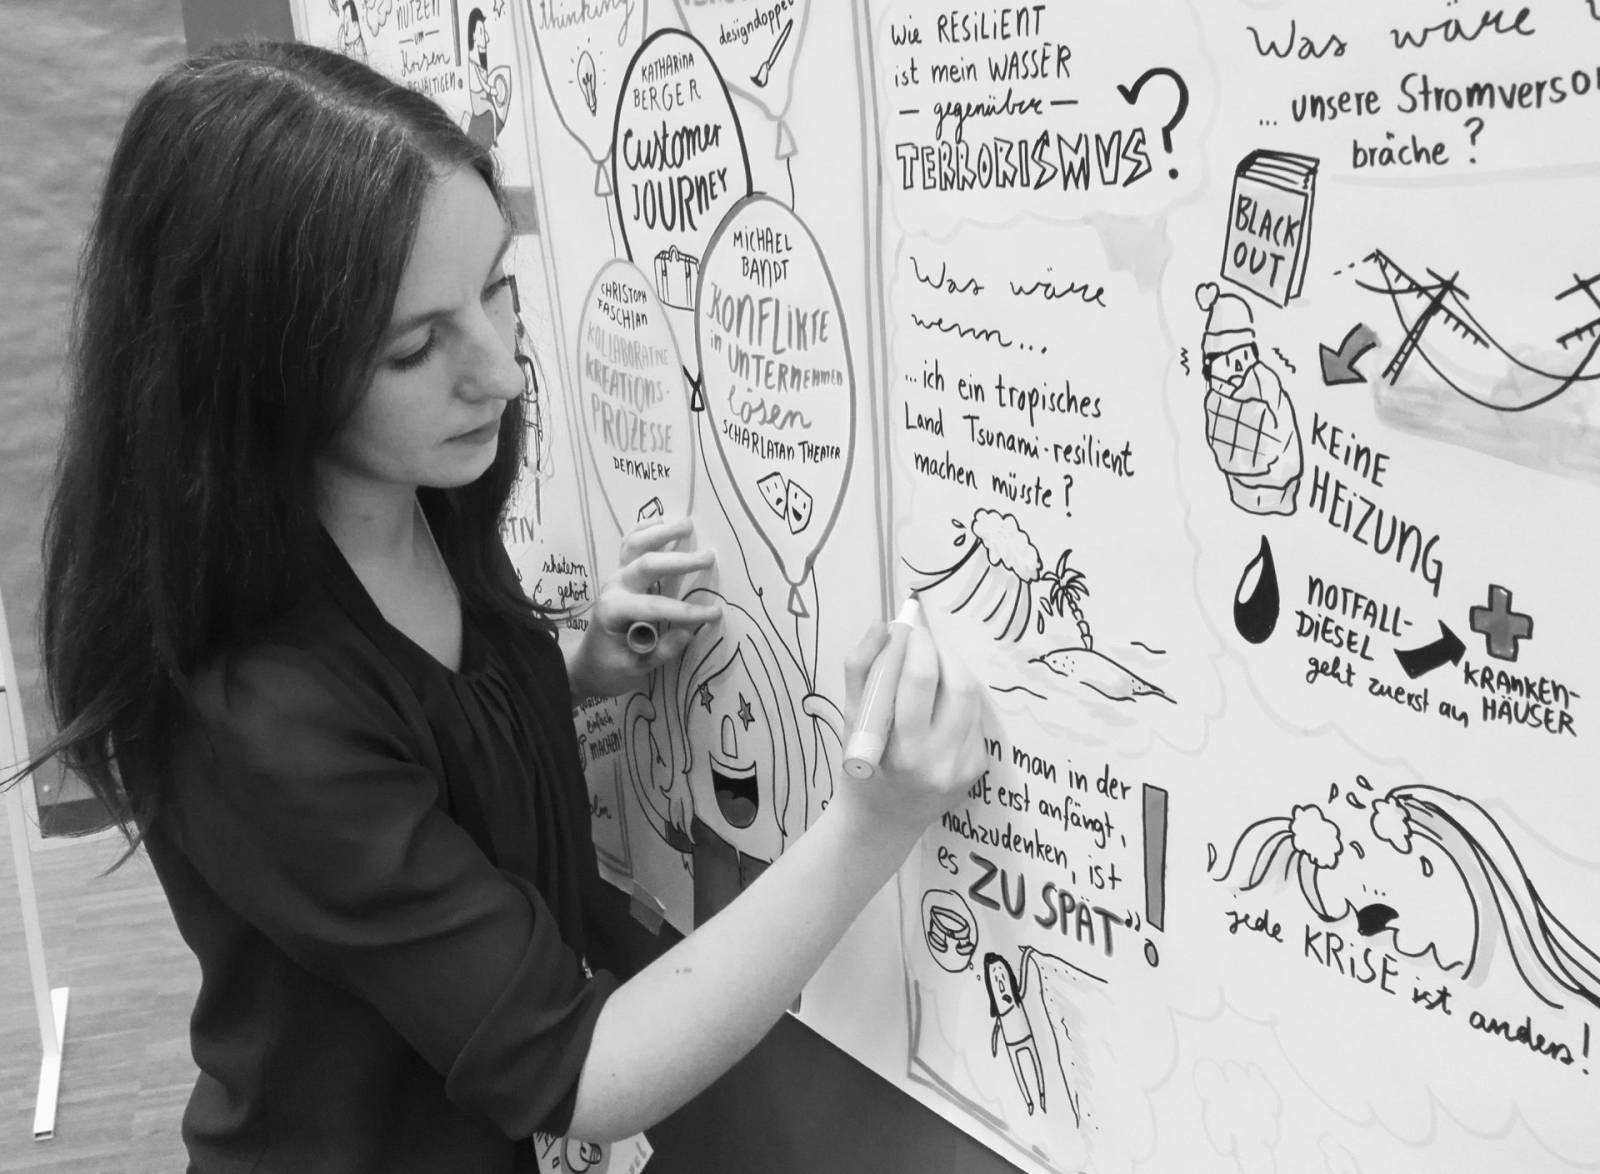 NUTZEN
um
Krisen
BEWÄLTIGEN!
thinking
designdoppel
KATHARINA
BERGER
Customer
JOURNEY
MICHAEL
BANDT
KONFLIKTE
in UNTERNEHMEN
lösen
SCHARLATAN THEATER
CHRISTOPH
FASCHIAN
KOLLABORATIVE
KREATIONS-
PROZESSE
DENKWERK
scheitern
gehört
dazu
einfach
MACHEN!
Wie RESILIENT
ist mein WASSER
— gegenüber —
TERRORISMUS?
Was wäre
wenn...
...ich ein tropisches
Land Tsunami-resilient
machen müsste?
man in der
erst anfängt,
nachzudenken, ist
es ZU SPÄT"!
Was wäre
... unsere Stromverso
bräche?
BLACK
OUT
KEINE
HEIZUNG
NOTFALL-
DIESEL
geht zuerst an
KRANKEN-
HÄUSER
jede KRISE ist anders!